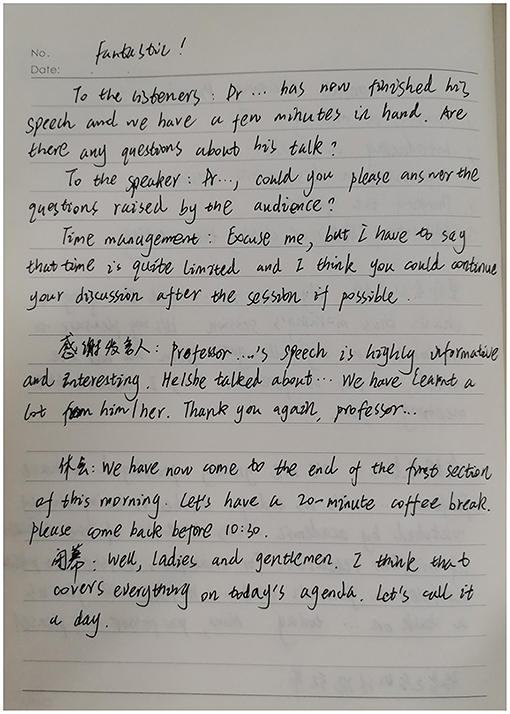 No.
fantastic!
Date:
To the listeners: Dr... has now finished his
speech and we have a few minutes in hand. Are
there any questions about his talk?
To the speaker: Dr..., could you please answer the
questions raised by the audience?
Time management: Excuse me, but I have to say
that time is quite limited and I think you could continue
your discussion after the session if possible.
感谢发言人: Professor ....'s speech is highly informative
and interesting. He/she talked about... We have learnt a
lot from him/her. Thank you again, professor...
休会: We have now come to the end of the first section
of this morning. Let's have a 20-minute coffee break.
Please come back before 10:30.
闭幕: Well, ladies and gentlemen. I think that
covers everything on today's agenda. Let's call it
a day.